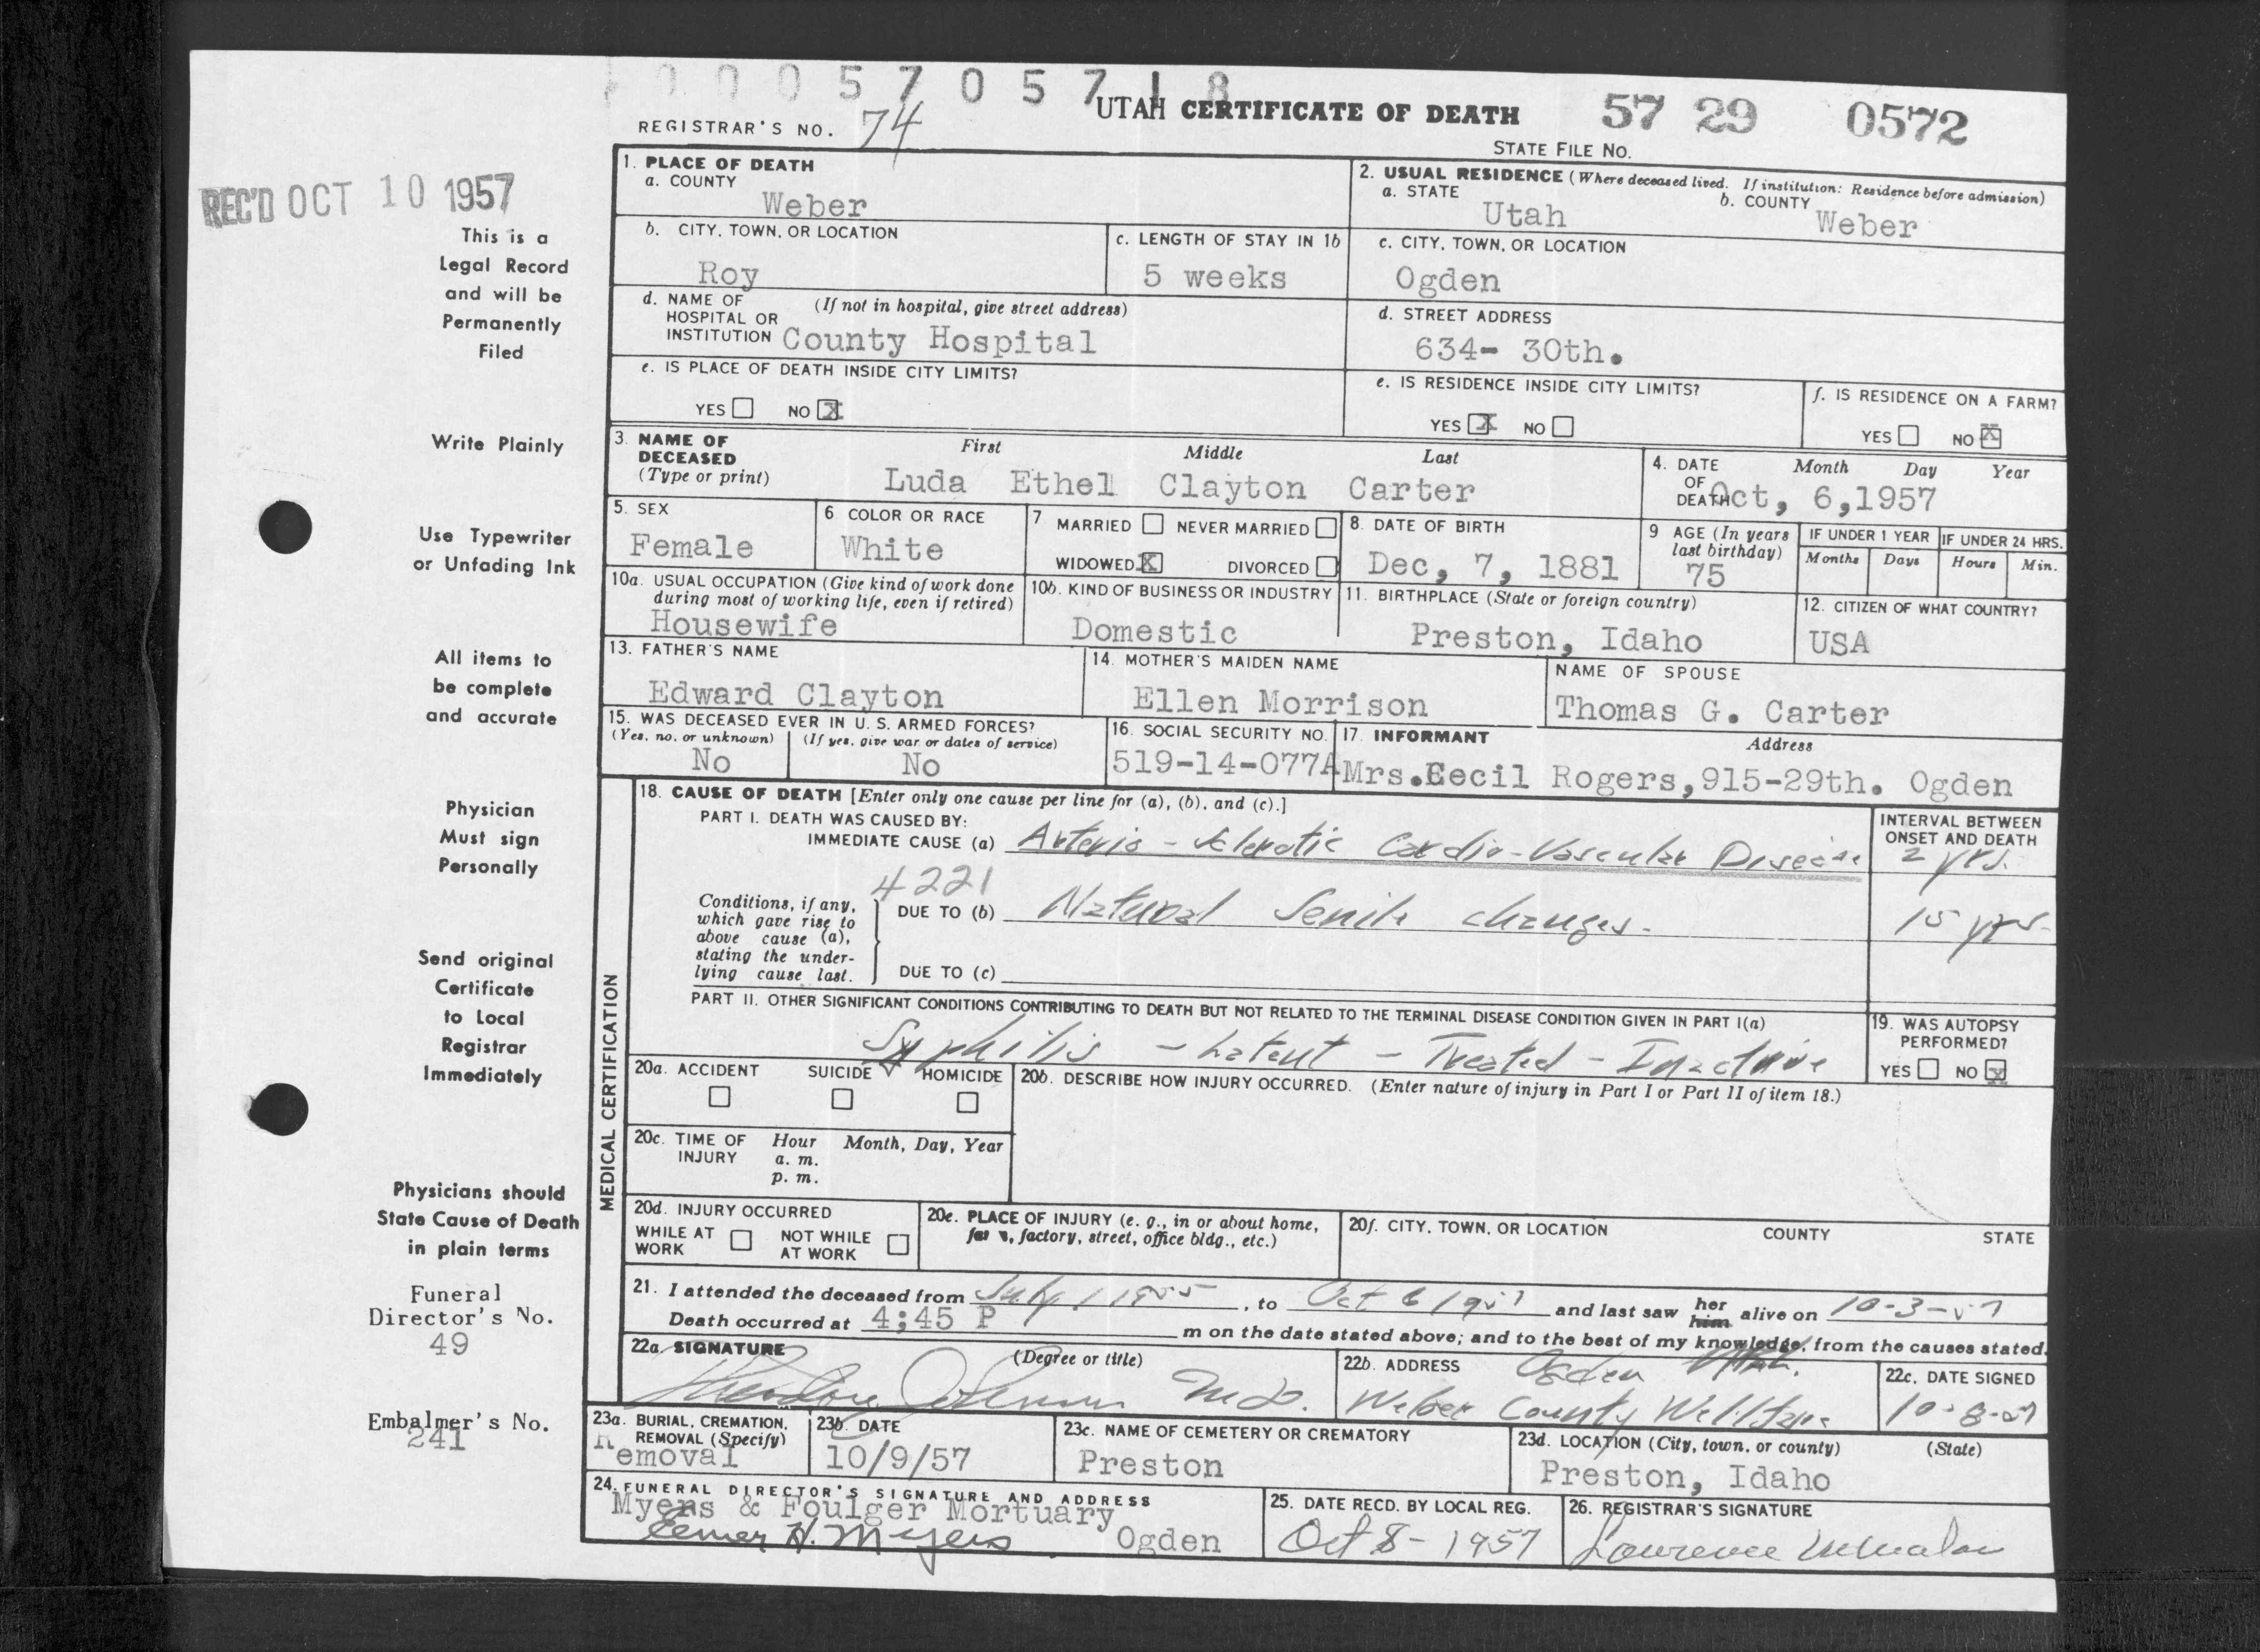 0 0 0 5 7 0 5 7 1 8
REGISTRAR'S NO. 74
UTAH CERTIFICATE OF DEATH
57 29 0572
STATE FILE NO.
REC'D OCT 10 1957
This is a
Legal Record
and will be
Permanently
Filed
Write Plainly
Use Typewriter
or Unfading Ink
All items to
be complete
and accurate
Physician
Must sign
Personally
Send original
Certificate
to Local
Registrar
Immediately
Physicians should
State Cause of Death
in plain terms
Funeral
Director's No.
49
Embalmer's No.
241
1. PLACE OF DEATH
a. COUNTY
Weber
2. USUAL RESIDENCE (Where deceased lived. If institution: Residence before admission)
a. STATE b. COUNTY
Utah Weber
b. CITY, TOWN, OR LOCATION
Roy
c. LENGTH OF STAY IN 1b
5 weeks
c. CITY, TOWN, OR LOCATION
Ogden
d. NAME OF (If not in hospital, give street address)
HOSPITAL OR
INSTITUTION County Hospital
d. STREET ADDRESS
634- 30th.
e. IS PLACE OF DEATH INSIDE CITY LIMITS?
YES NO X
e. IS RESIDENCE INSIDE CITY LIMITS?
YES X NO
f. IS RESIDENCE ON A FARM?
YES NO X
3. NAME OF First Middle Last
DECEASED
(Type or print)
Luda Ethel Clayton Carter
4. DATE Month Day Year
OF
DEATH Oct, 6,1957
5. SEX
Female
6 COLOR OR RACE
White
7 MARRIED NEVER MARRIED
WIDOWED X DIVORCED
8. DATE OF BIRTH
Dec, 7, 1881
9 AGE (In years
last birthday)
75
IF UNDER 1 YEAR IF UNDER 24 HRS.
Months Days Hours Min.
10a. USUAL OCCUPATION (Give kind of work done
during most of working life, even if retired)
Housewife
10b. KIND OF BUSINESS OR INDUSTRY
Domestic
11. BIRTHPLACE (State or foreign country)
Preston, Idaho
12. CITIZEN OF WHAT COUNTRY?
USA
13. FATHER'S NAME
Edward Clayton
14. MOTHER'S MAIDEN NAME
Ellen Morrison
NAME OF SPOUSE
Thomas G. Carter
15. WAS DECEASED EVER IN U. S. ARMED FORCES?
(Yes, no, or unknown) (If yes, give war or dates of service)
No No
16. SOCIAL SECURITY NO.
519-14-077A
17. INFORMANT Address
Mrs. Eecil Rogers,915-29th. Ogden
18. CAUSE OF DEATH [Enter only one cause per line for (a), (b), and (c).]
PART I. DEATH WAS CAUSED BY:
IMMEDIATE CAUSE (a) Arterio - sclerotic Cardio-Vascular Disease
INTERVAL BETWEEN
ONSET AND DEATH
2 yrs.
4221
Conditions, if any,
which gave rise to
above cause (a),
stating the under-
lying cause last.
DUE TO (b) Natural Senile changes.
15 yrs.
DUE TO (c)
PART II. OTHER SIGNIFICANT CONDITIONS CONTRIBUTING TO DEATH BUT NOT RELATED TO THE TERMINAL DISEASE CONDITION GIVEN IN PART I(a)
Syphilis - Latent - Treated - Inactive
19. WAS AUTOPSY
PERFORMED?
YES NO X
MEDICAL CERTIFICATION
20a. ACCIDENT SUICIDE HOMICIDE
20b. DESCRIBE HOW INJURY OCCURRED. (Enter nature of injury in Part I or Part II of item 18.)
20c. TIME OF Hour Month, Day, Year
INJURY a. m.
p. m.
20d. INJURY OCCURRED
WHILE AT NOT WHILE
WORK AT WORK
20e. PLACE OF INJURY (e. g., in or about home,
farm, factory, street, office bldg., etc.)
20f. CITY, TOWN, OR LOCATION COUNTY STATE
21. I attended the deceased from July 1 1955, to Oct 6 1957 and last saw her him alive on 10-3-57
Death occurred at 4;45 P m on the date stated above; and to the best of my knowledge, from the causes stated.
22a. SIGNATURE (Degree or title)
Theodore M.D.
22b. ADDRESS Ogden Utah.
Weber County Welfare
22c. DATE SIGNED
10-8-57
23a. BURIAL, CREMATION,
REMOVAL (Specify)
Removal
23b. DATE
10/9/57
23c. NAME OF CEMETERY OR CREMATORY
Preston
23d. LOCATION (City, town, or county) (State)
Preston, Idaho
24. FUNERAL DIRECTOR'S SIGNATURE AND ADDRESS
Myers & Foulger Mortuary
Elmer H. Myers Ogden
25. DATE RECD. BY LOCAL REG.
Oct 8 - 1957
26. REGISTRAR'S SIGNATURE
Lawrence